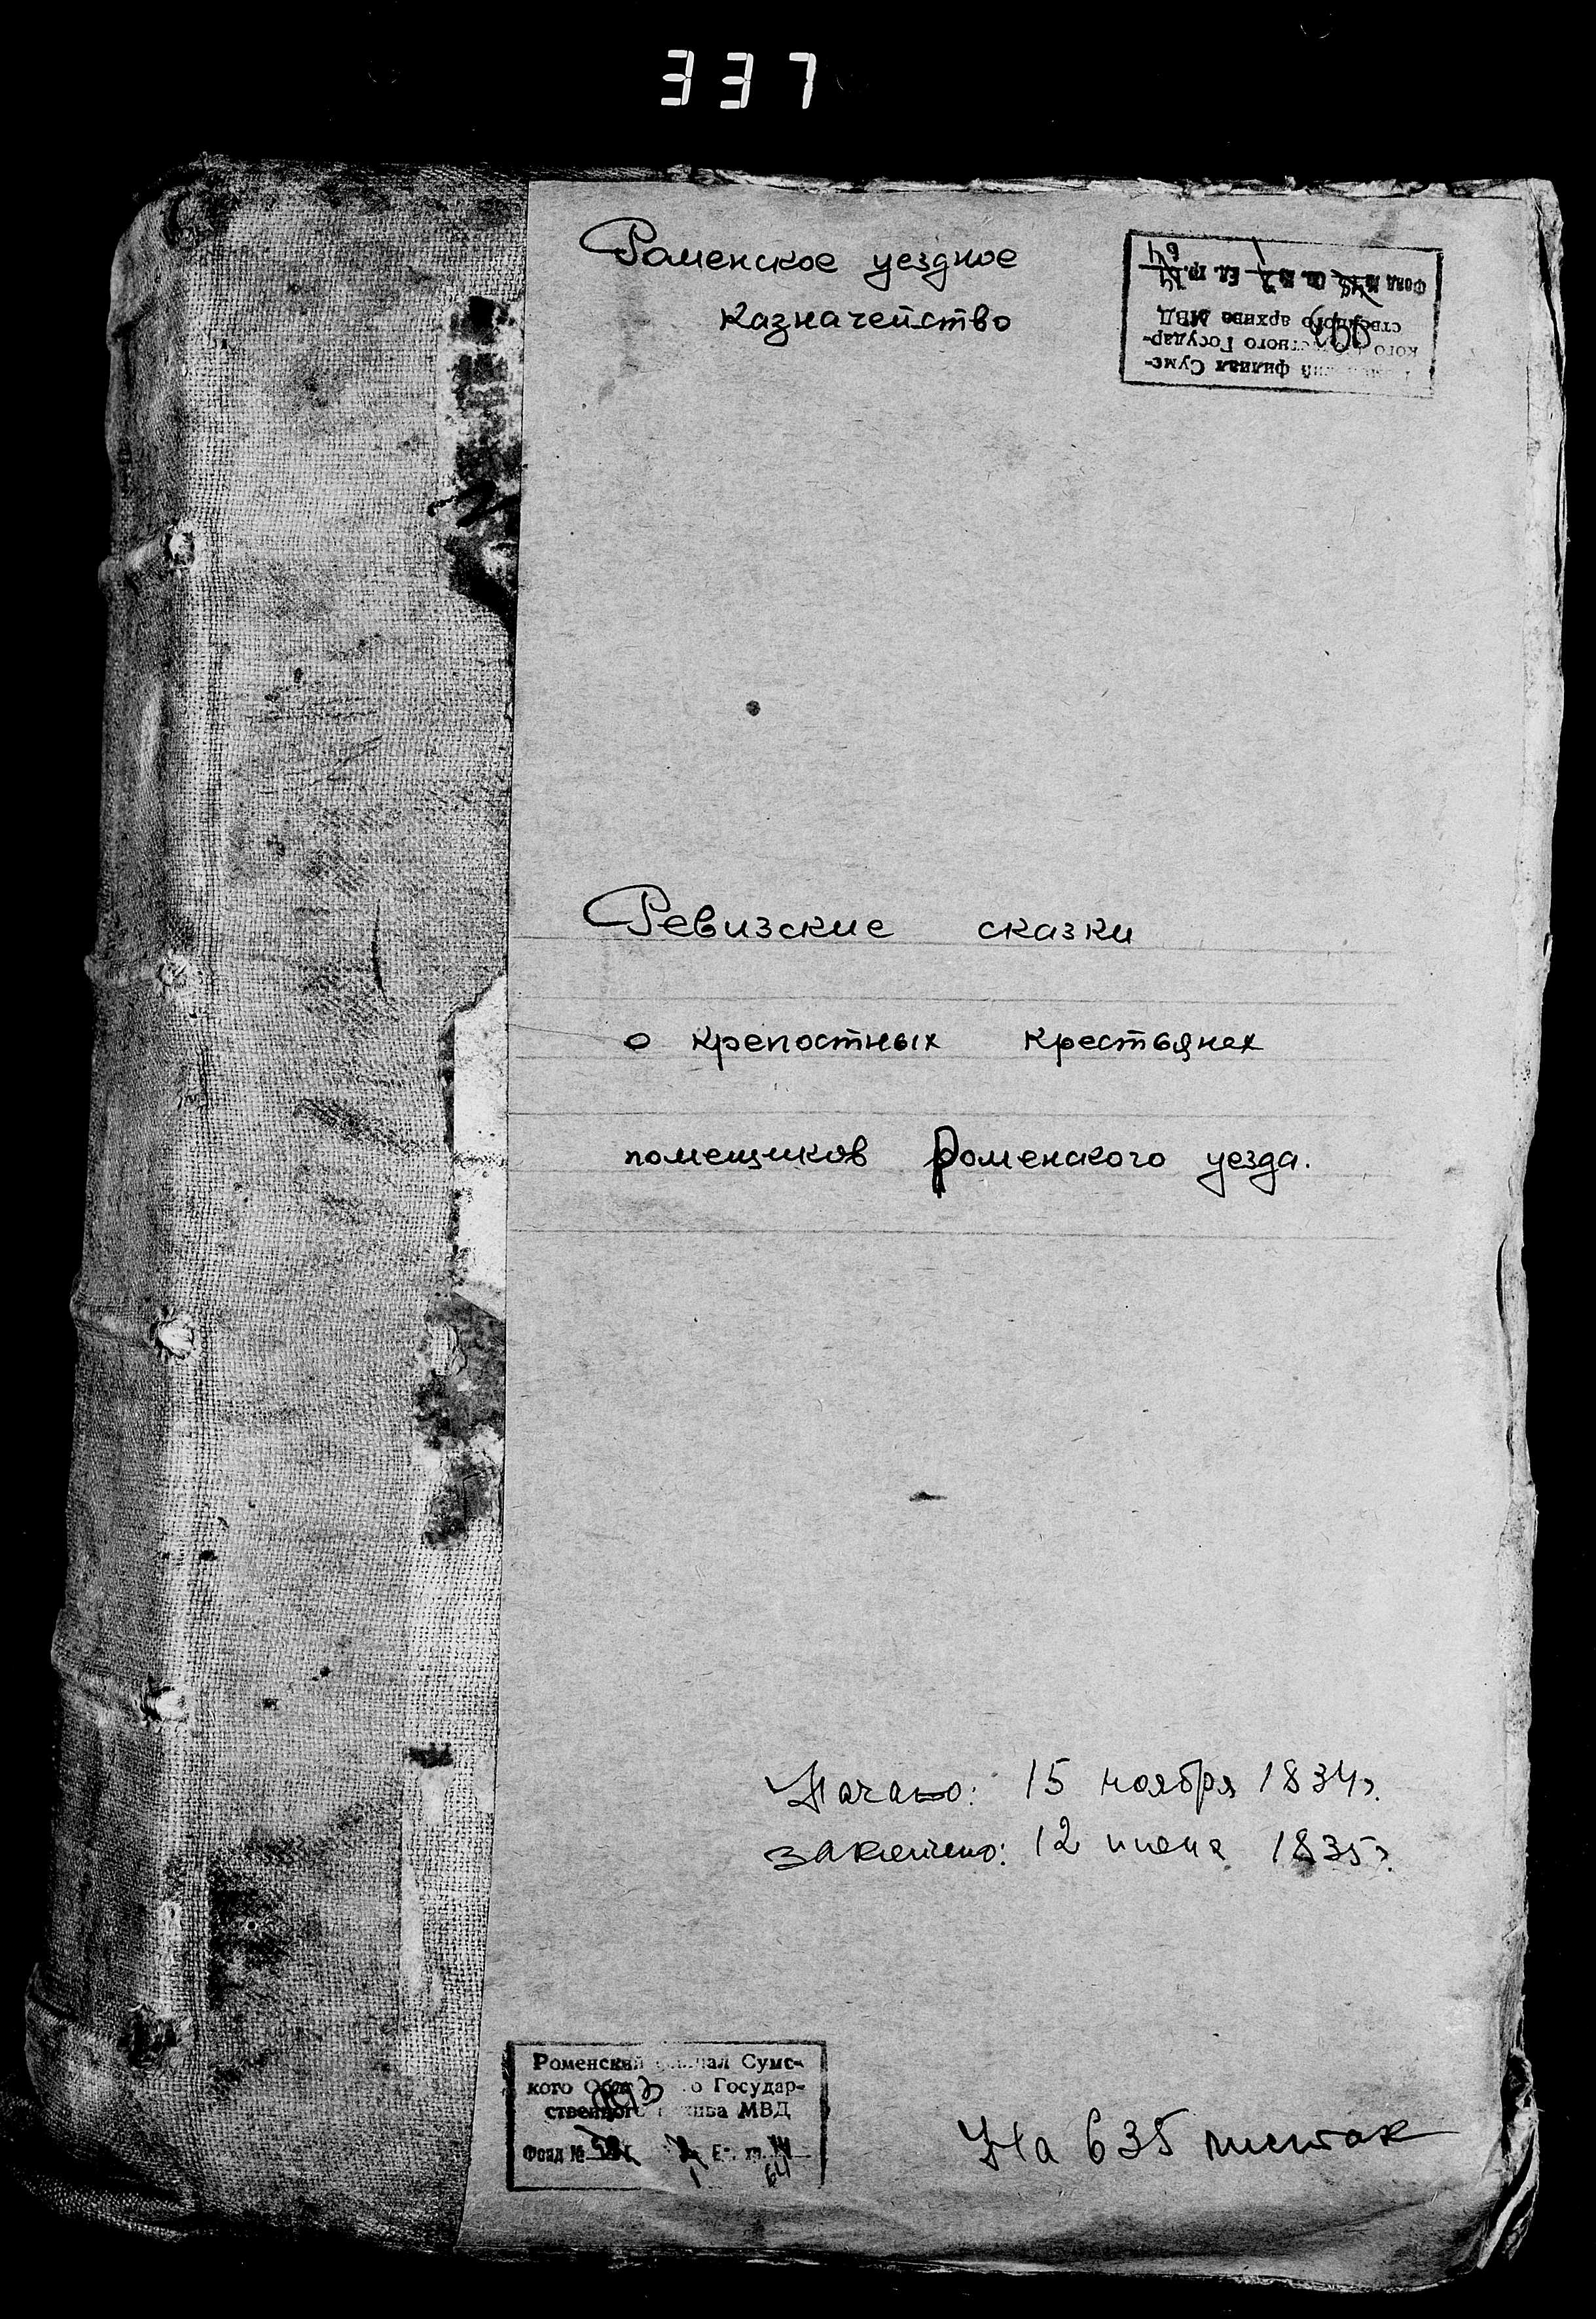 337
Роменское уездное
казначейство
филиал Сумс-
кого Государ-
ственного архива МВД
Фонд №
Ревизские сказки
о крепостных крестьянах
помещиков Роменского уезда.
Начато: 15 ноября 1834г.
закончено: 12 июня 1835г.
Роменский филиал Сумс-
кого Государ-
ственного МВД
Фонд № 64
На 635 листах